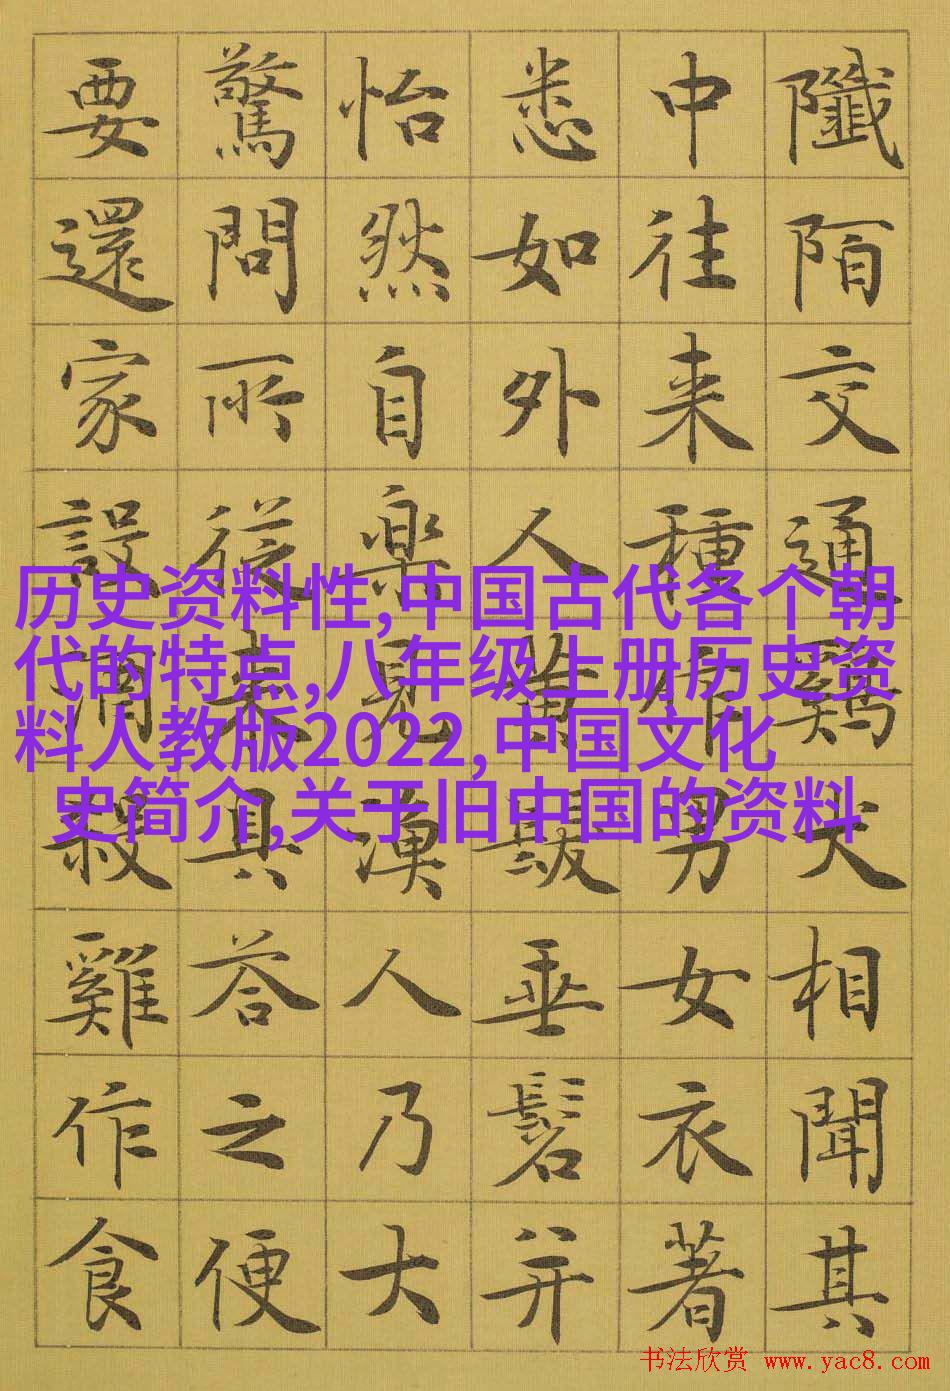 陌交通鷄犬相聞其
中往来種作男女衣著
悉如外人黄髮垂髫并
怡然自楽見漁人乃大
驚問所從来具答之便
要還家設酒殺雞作食
历史资料性,中国古代各个朝
代的特点,八年级上册历史资
料人教版2022,中国文化
史简介,关于旧中国的资料
书法欣赏 www.yac8.com